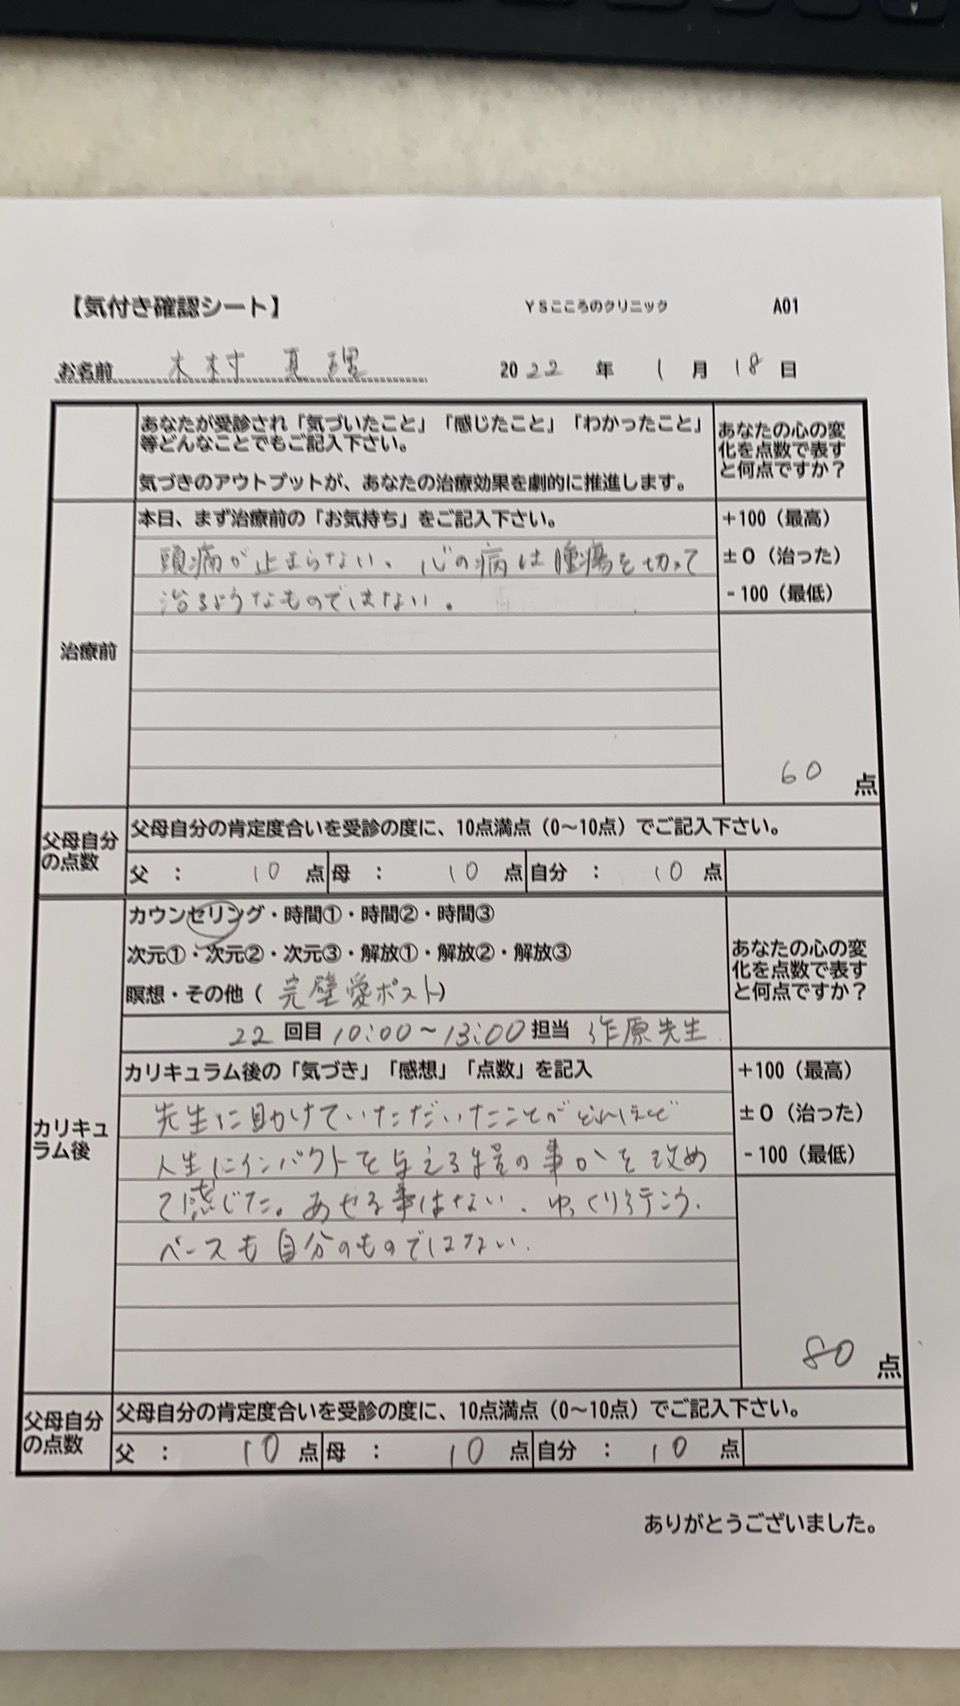 【気付き確認シート】 YSこころのクリニック A01
お名前 木村 真理 2022 年 1 月 18 日
あなたが受診され「気づいたこと」「感じたこと」「わかったこと」
等どんなことでもご記入下さい。
気づきのアウトプットが、あなたの治療効果を劇的に推進します。
あなたの心の変
化を点数で表す
と何点ですか？
治療前
本日、まず治療前の「お気持ち」をご記入下さい。
頭痛が止まらない、心の病は腫瘍を切って
治るようなものではない。
+100（最高）
±0（治った）
-100（最低）
60 点
父母自分
の点数
父母自分の肯定度合いを受診の度に、10点満点（0～10点）でご記入下さい。
父 ： 10 点 母 ： 10 点 自分 ： 10 点
カリキュ
ラム後
カウンセリング・時間①・時間②・時間③
次元①・次元②・次元③・解放①・解放②・解放③
瞑想・その他（ 完璧愛ポスト）
22 回目 10:00～13:00 担当 作原先生
あなたの心の変
化を点数で表す
と何点ですか？
カリキュラム後の「気づき」「感想」「点数」を記入
先生に助けていただいたことがどれほど
人生にインパクトを与える程の事かを改め
て感じた。あせる事はない．ゆっくり行こう．
ペースも自分のものではない．
+100（最高）
±0（治った）
-100（最低）
80 点
父母自分
の点数
父母自分の肯定度合いを受診の度に、10点満点（0～10点）でご記入下さい。
父 ： 10 点 母 ： 10 点 自分 ： 10 点
ありがとうございました。